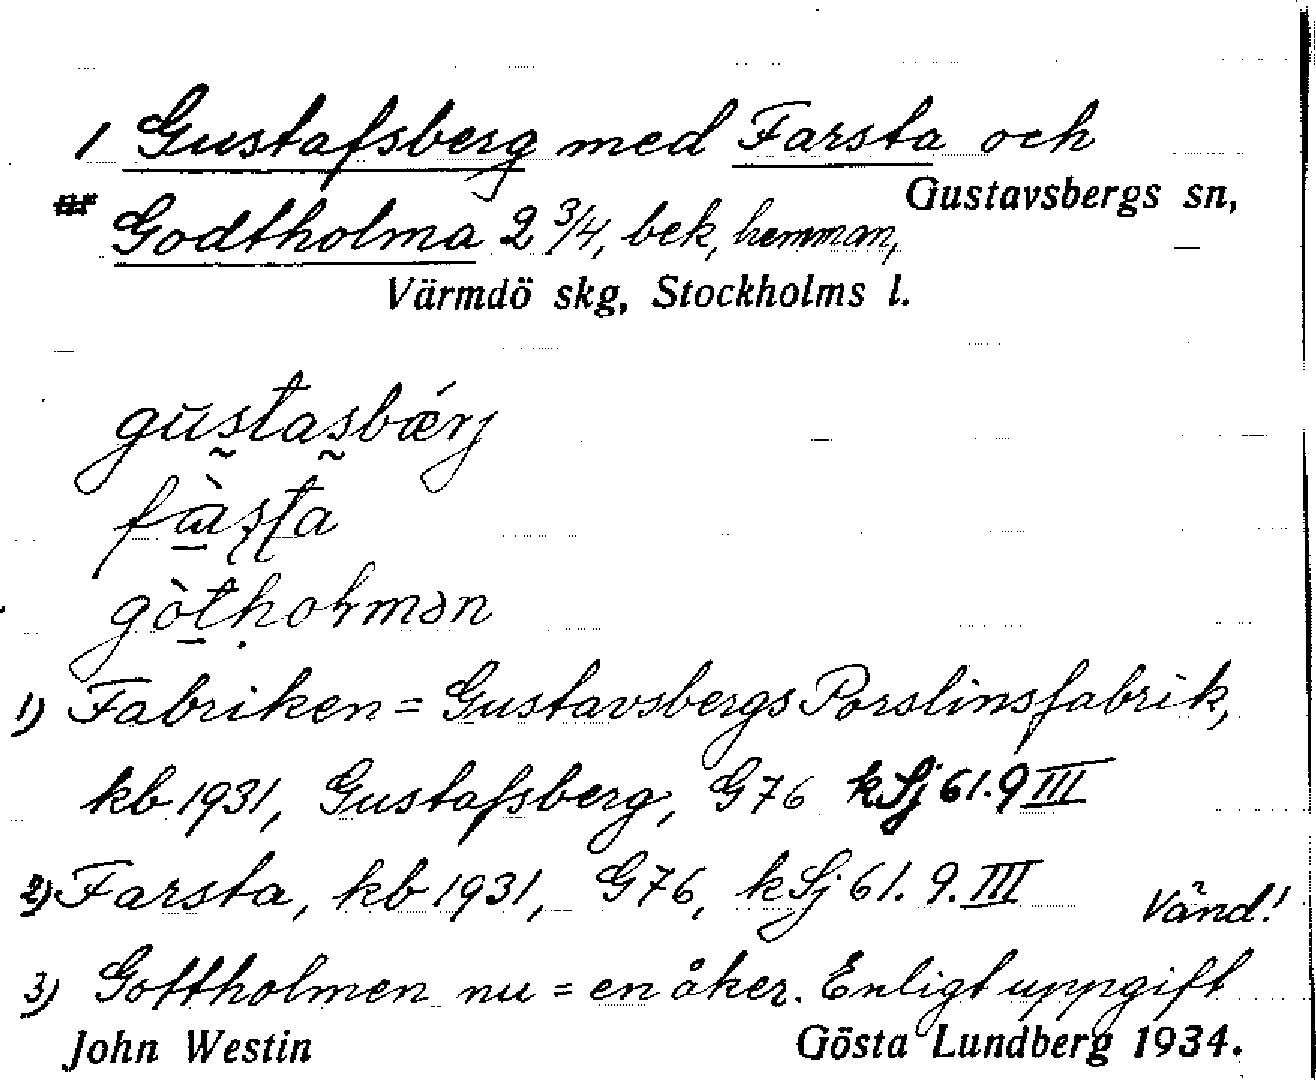 1 Gustafsberg med Farsta och
Gustavsbergs sn,
Godtholma 2 3/4, bek, hemman,
Värmdö skg, Stockholms l.
gustasbǽrj
fàsta
gòtholmən
1) Fabriken = Gustavsbergs Porslinsfabrik,
kb 1931, Gustafsberg, G76 kSj 61.9 III
2) Farsta, kb 1931, G76, kSj 61.9.III
Vänd!
3) Gottholmen nu = en åker. Enligt uppgift
John Westin Gösta Lundberg 1934.